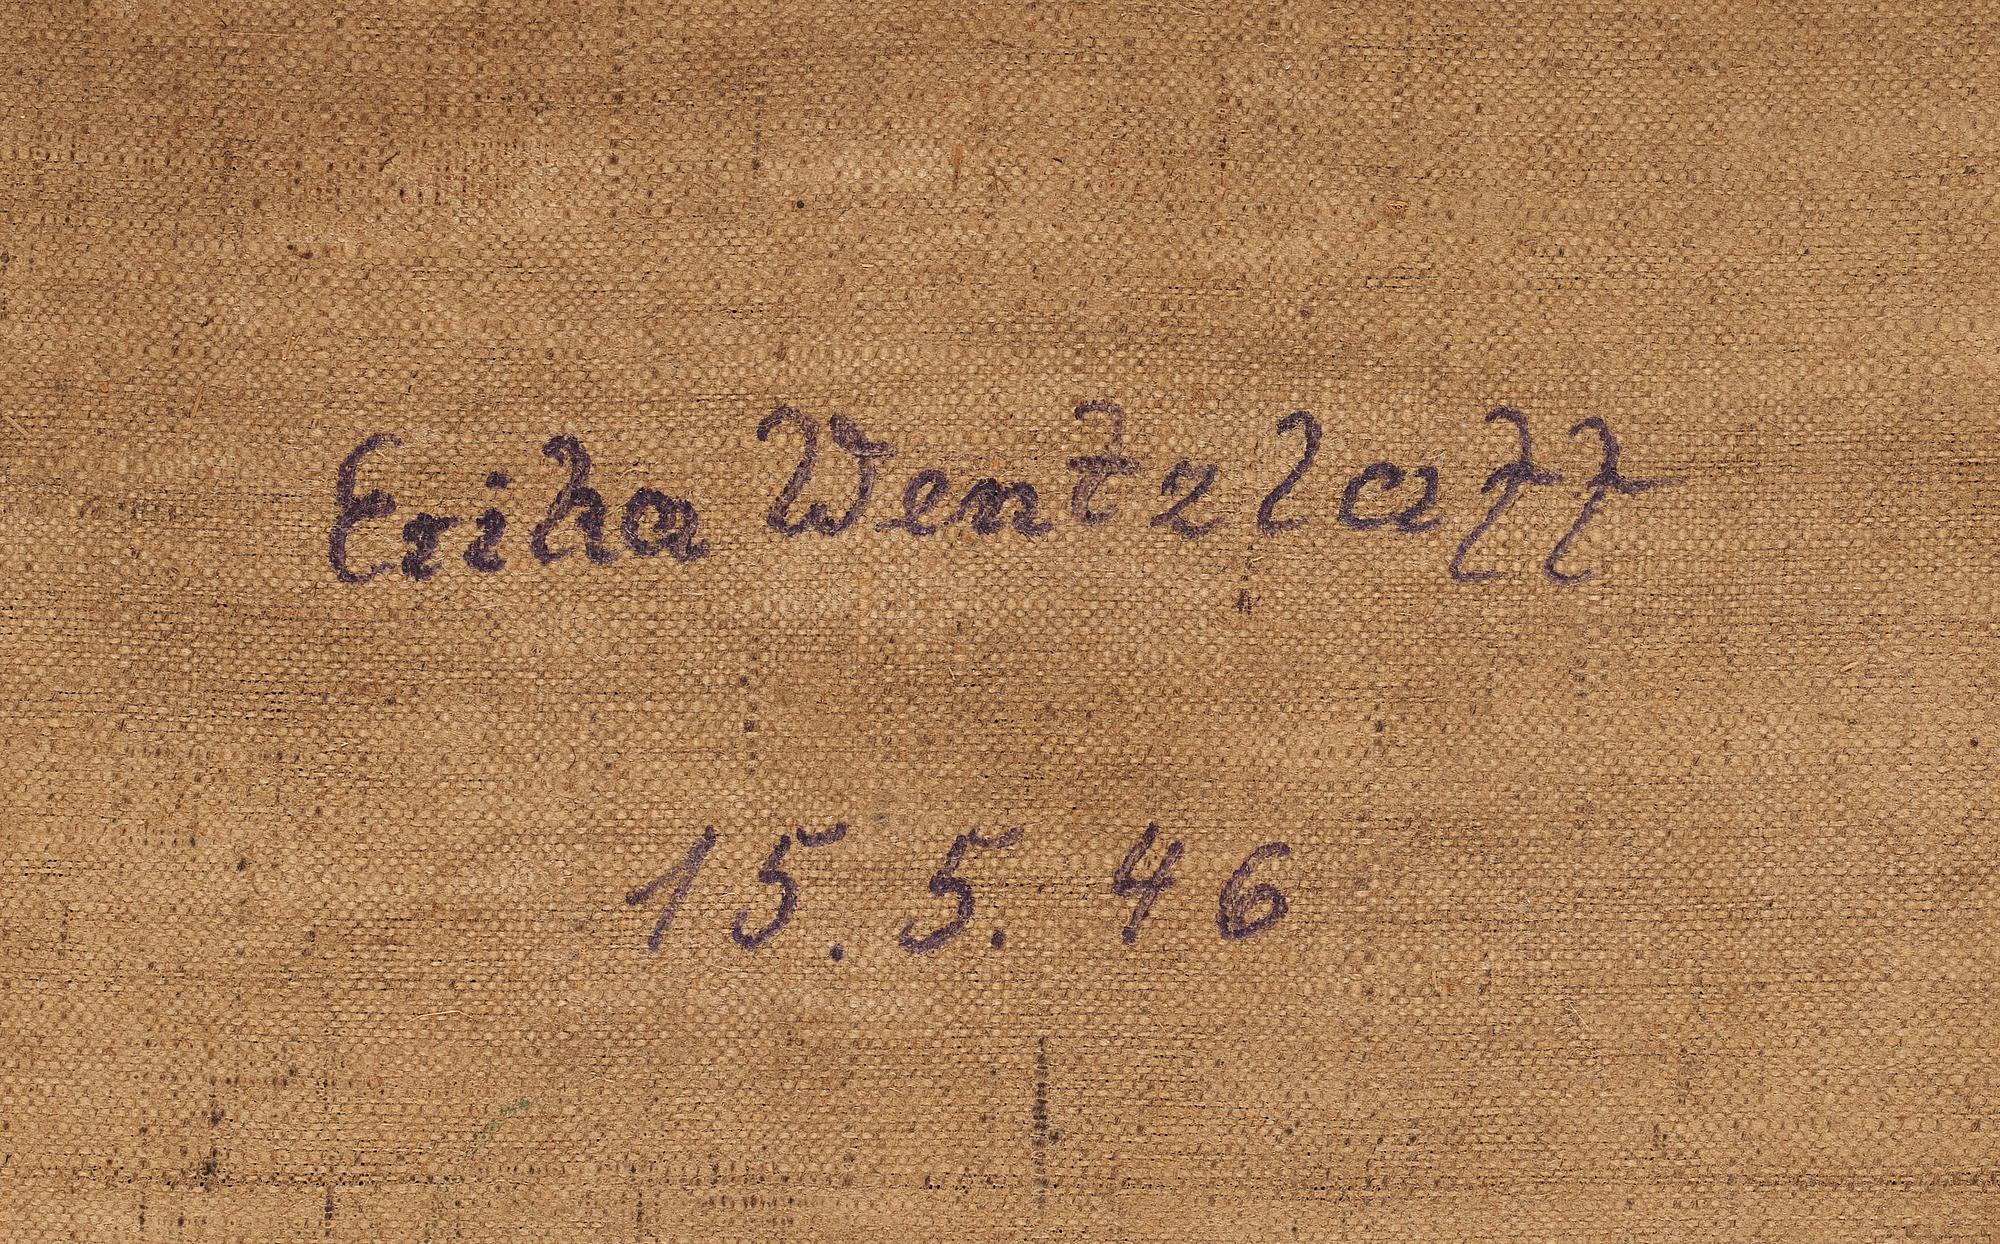 Erika Wentzlaff
15.5.46